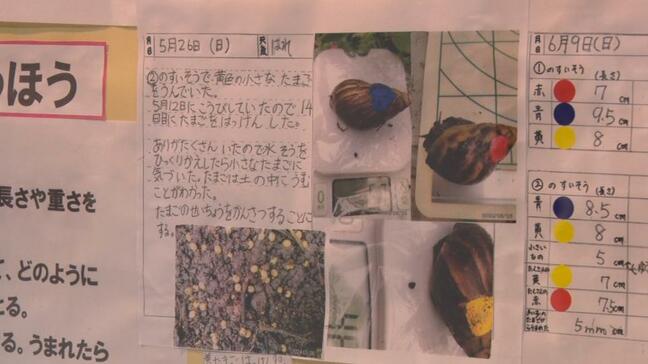 のほう
長さや重さを
て、どのように
とる。
る。うまれたら
月日 5月26日(日) 天気 はれ
②のすいそうで黄色の小さな たまご
をうんでいた。
5月12日にこうびしていたので 14
日目にたまごをはっけん した。
ありがたくさん いたので水 そうを
ひっくりかえしたら小さなたまごに
気づいた。たまごは土 の中に うむ
ことがわかった。
たまごのせいちょうをかんさつする ことに
する。
月日 6月9日(日)
①のすいそう (長さ)
赤 7 cm
青 9.5 cm
黄 8 cm
②のすいそう (長さ)
青 8.5 cm
黄 8 cm
小さい
なの 5 cm
たくさんの
黄 7 cm
たくさんの
赤 7.5 cm
5mm cm